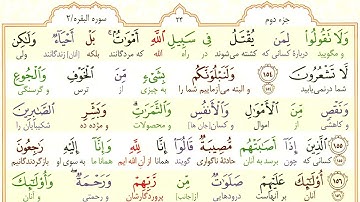 جزء دوم ۲۴ سوره البقره/۲
وَلَا تَقُولُوا لِمَن يُقْتَلُ فِي سَبِيلِ اللَّهِ أَمْوَاتٌ بَلْ أَحْيَاءٌ وَلَكِن
و مگویید دربارهٔ کسانی که کشته می‌شوند در راه الله که مردگانند بلکه [آنان] زندگانند ولی
لَّا تَشْعُرُونَ ۝۱۵۴ وَلَنَبْلُوَنَّكُم بِشَيْءٍ مِّنَ الْخَوْفِ وَالْجُوعِ
شما درنمی‌یابید و البته می‌آزماییم شما را به چیزی از ترس و گرسنگی
وَنَقْصٍ مِّنَ الْأَمْوَالِ وَالْأَنفُسِ وَالثَّمَرَاتِ وَبَشِّرِ الصَّابِرِينَ
و کاهشی از اموال و کسان[جان ها] و محصولات و مژده ده شکیبایان را
۝۱۵۵ الَّذِينَ إِذَا أَصَابَتْهُم مُّصِيبَةٌ قَالُوا إِنَّا لِلَّهِ وَإِنَّا إِلَيْهِ رَاجِعُونَ
کسانی که چون برسد به آنان حادثهٔ ناگواری گویند همانا از آن الله ایم و همانا به سوی او بازگردندگانیم
۝۱۵۶ أُولَئِكَ عَلَيْهِمْ صَلَوَاتٌ مِّن رَّبِّهِمْ وَرَحْمَةٌ وَأُولَئِكَ
آنان بر آنهاست درودهایی از [جانب] پروردگارشان و رحمتی و آنان